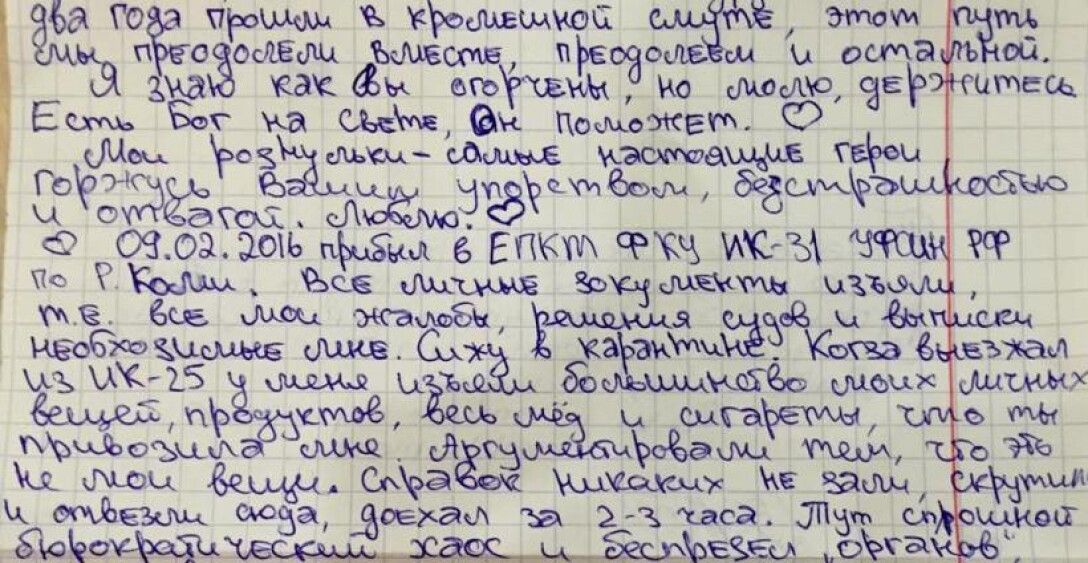 два года прошли в кромешной смуте, этот путь
мы преодолели вместе, преодолеем и остальной.
Я знаю как Вы огорчены, но молю, держитесь
Есть Бог на свете, Он поможет. ♡
Мои роднульки – самые настоящие герои
горжусь Вашим упорством, безстрашностью
и отвагой. Люблю. ♡
♡ 09.02.2016 прибыл в ЕПКТ ФКУ ИК-31 УФСИН РФ
по Р.Коми. Все личные документы изъяли,
т.е. все мои жалобы, решения судов и выписки
необходимые мне. Сижу в карантине. Когда выезжал
из ИК-25 у меня изъяли большинство моих личных
вещей, продуктов, весь мёд и сигареты, что ты
привозила мне. Аргументировали тем, что это
не мои вещи. Справок никаких не дали, скрутили
и отвезли сюда, доехал за 2-3 часа. Тут сплошной
бюрократический хаос и беспредел „органов“.